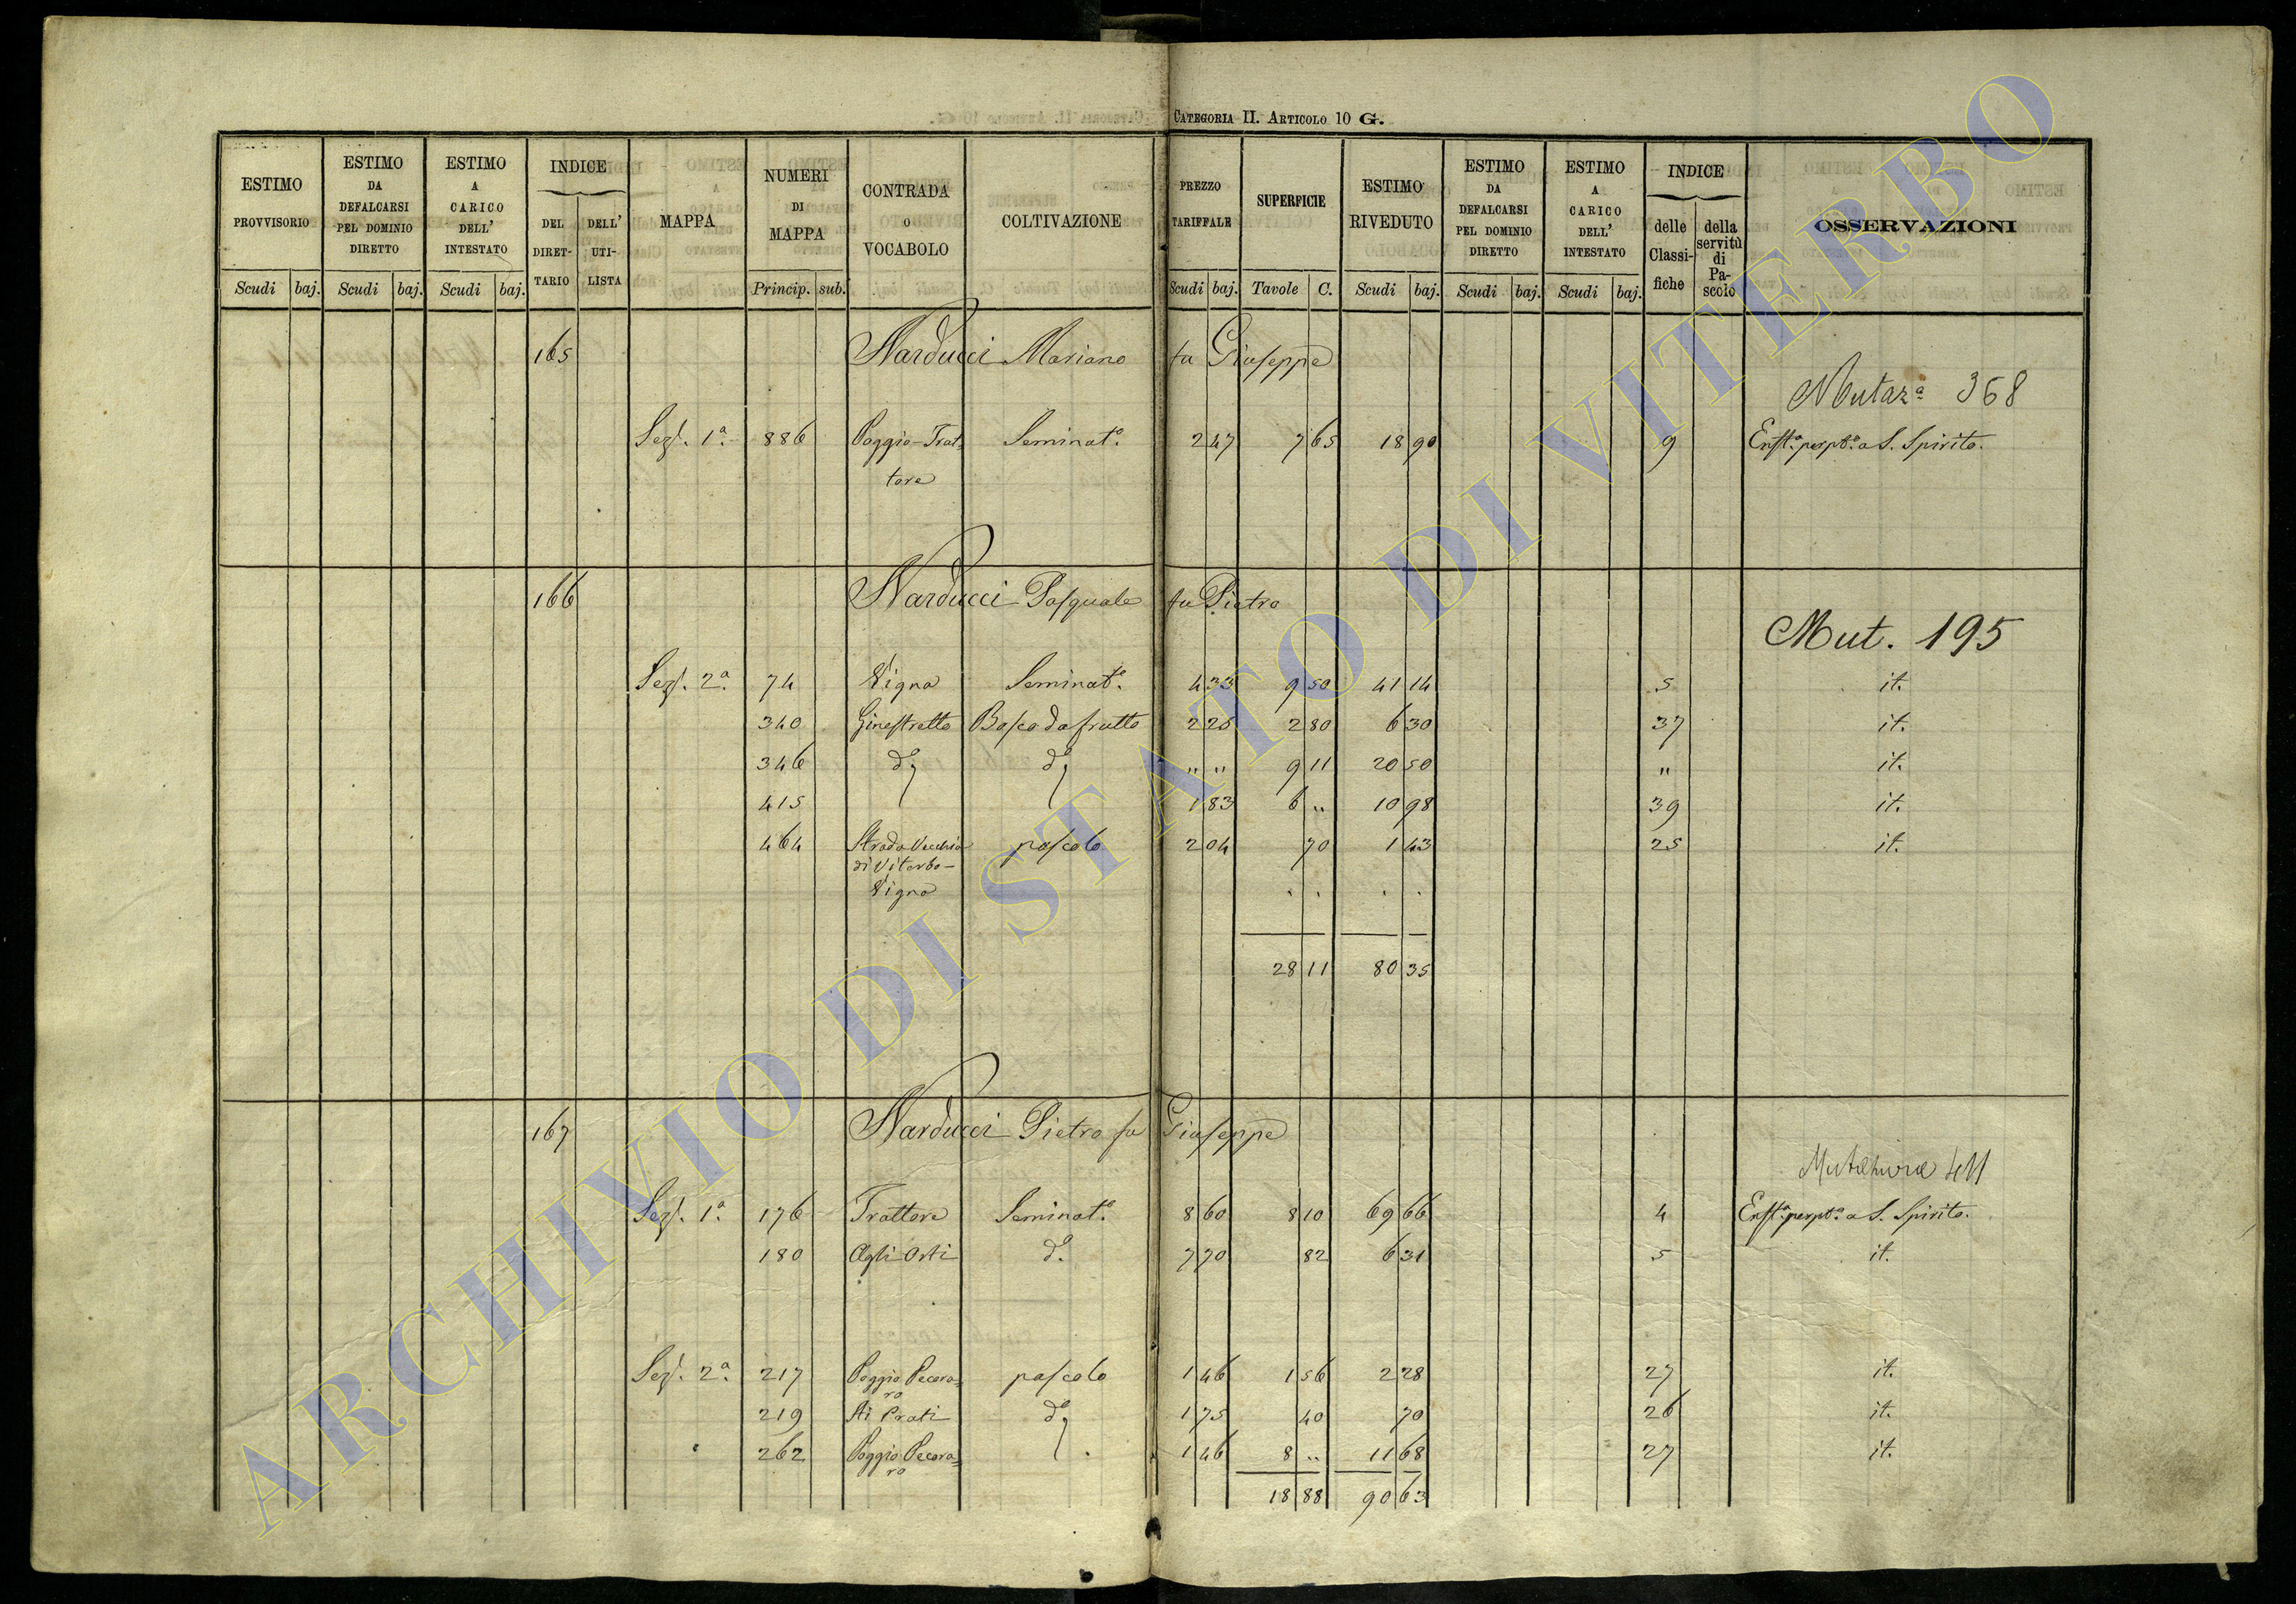 CATEGORIA II. ARTICOLO 10 G.
ESTIMO PROVVISORIO Scudi baj.
ESTIMO DA DEFALCARSI PEL DOMINIO DIRETTO Scudi baj.
ESTIMO A CARICO DELL' INTESTATO Scudi baj.
INDICE DEL DIRET-TARIO DELL' UTI-LISTA
MAPPA
NUMERI DI MAPPA Princip. sub.
CONTRADA O VOCABOLO
COLTIVAZIONE
PREZZO TARIFFALE Scudi baj.
SUPERFICIE Tavole C.
ESTIMO RIVEDUTO Scudi baj.
ESTIMO DA DEFALCARSI PEL DOMINIO DIRETTO Scudi baj.
ESTIMO A CARICO DELL' INTESTATO Scudi baj.
INDICE delle Classi-fiche della servitù di Pa-scolo
OSSERVAZIONI
165 Narducci Mariano fu Giuseppe
Mutaz.ª 368
Sez. 1ª 886 Poggio-Trat- Seminatº. 2 47 7 65 18 90 9 Enftª. perptª. a S. Spirito.
tore
166 Narducci Pasquale fu Pietro
Mut. 195
Sez. 2ª 74 Vigna Seminatº. 4 33 9 50 41 14 5 it.
340 Ginestretto Bosco da frutto 2 25 2 80 6 30 37 it.
346 dº dº " " 9 11 20 50 " it.
415 1 83 6 " 10 98 39 it.
464 Strada Vecchia pascolo 2 04 70 1 43 25 it.
di Viterbo-
Vigna
28 11 80 35
167 Narducci Pietro fu Giuseppe
Mutazione 411
Sez. 1ª 176 Trattore Seminatº. 8 60 8 10 69 66 4 Enftª. perptª. a S. Spirito.
180 Agli Orti dº. 7 70 82 6 31 5 it.
Sez. 2ª 217 Poggio Pecora- pascolo 1 46 1 56 2 28 27 it.
ro
219 Ai Prati dº 1 75 40 70 26 it.
262 Poggio Pecora- 1 46 8 " 11 68 27 it.
ro
18 88 90 63
ARCHIVIO DI STATO DI VITERBO